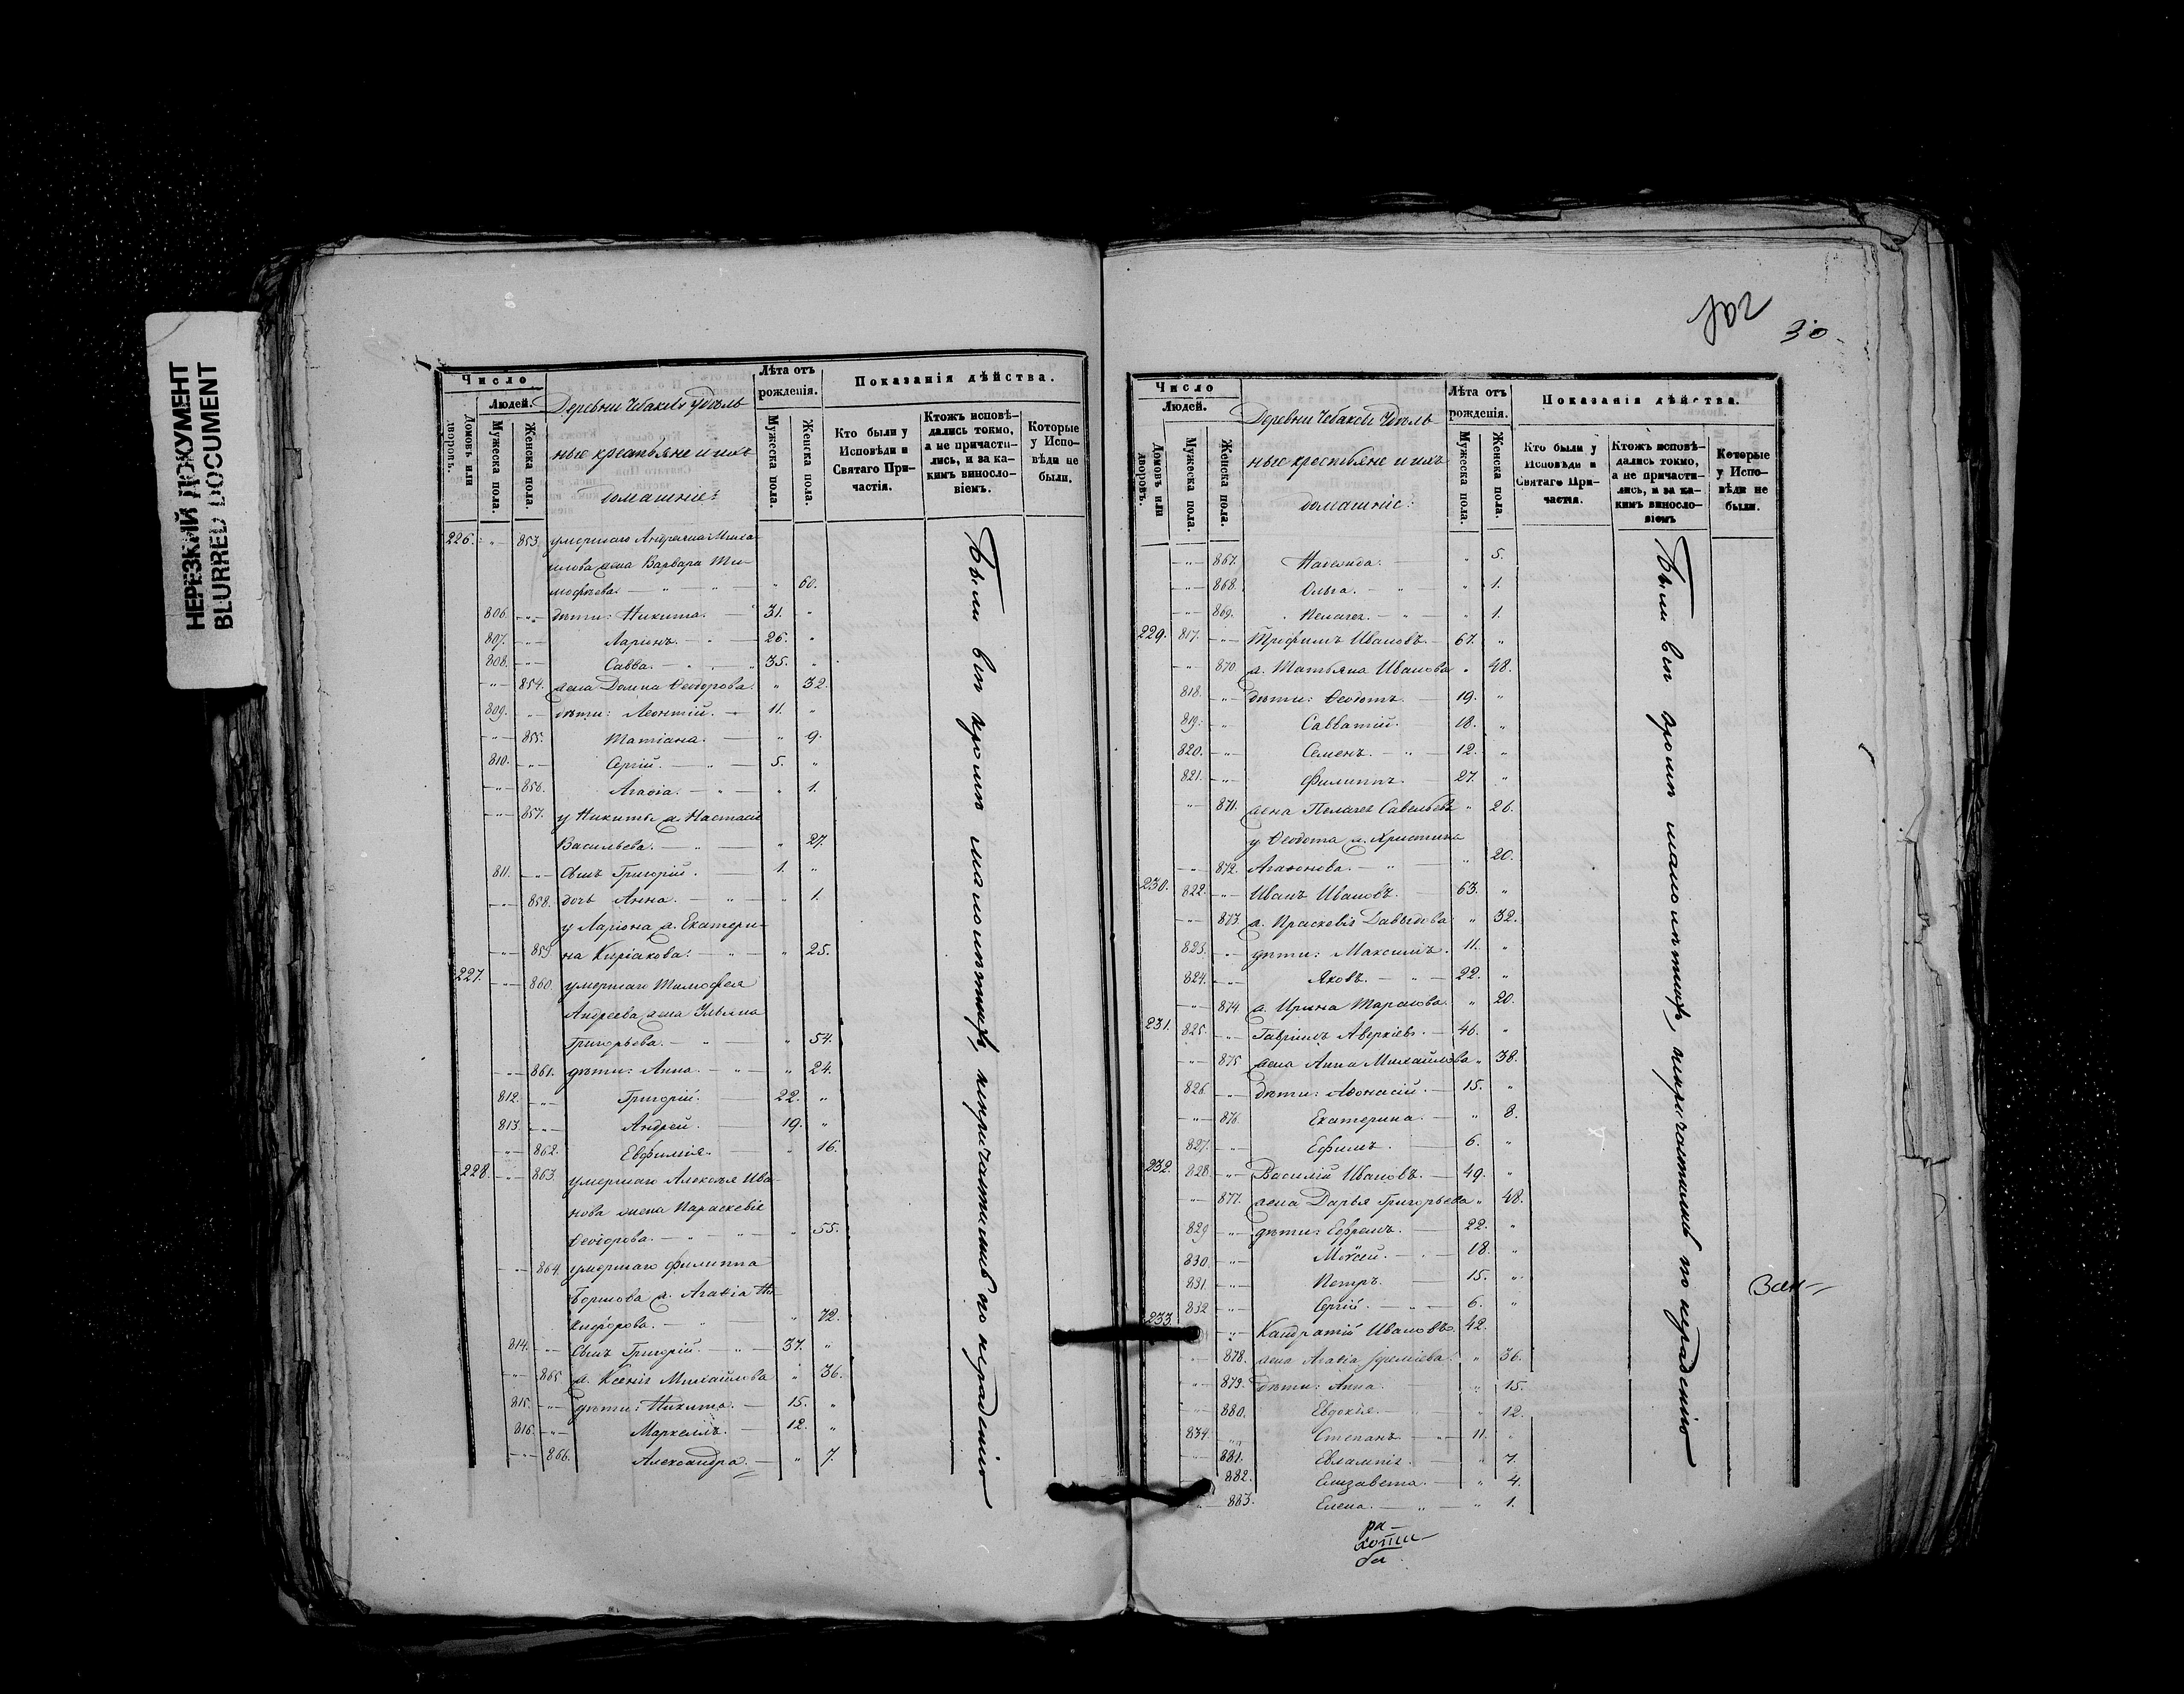 НЕРЕЗКИЙ ДОКУМЕНТ
BLURRED DOCUMENT
Число
Людей.
Домовъ или дворовъ.
Мужеска пола.
Женска пола.
Деревни Чебаксы Удѣль
ные крестьяне и ихъ
домашніе:
Лѣта отъ рожденія.
Мужеска пола.
Женска пола.
Показанія дѣйства.
Кто были у Исповѣди и Святаго Причастія.
Ктожъ исповѣдались токмо, а не причастились, и за какимъ винословіемъ.
Которые у Исповѣди не были.
226. -"- 853. умершаго Андреяна Миха
илова жена Варвара Ти-
мофѣева. — " — " 60.
806. -"- дѣти: Никита. — 31. "
807. -"- Ларіонъ. — 26. "
808. -"- Савва. — 35. "
-"- 854. жена Домна Ѳеодорова. " 32.
809. -"- дѣти: Леонтій. — 11. "
-"- 855. Татіана. — " 9.
810. -"- Сергій. — " — 5. "
-"- 856. Агаѳія. — " — " 1.
-"- 857. у Никиты ж. Настасія
Васильева. — " — " 27.
811. -"- сынъ Григорій. — 1. "
-"- 858. дочь Анна. — " — " 1.
у Ларіона ж. Екатери-
-"- 859. на Киріакова. — " — " 25.
227. -"- 860. умершаго Тимофея
Андреева жена Ульяна
Григорьева. — " — " 54.
-"- 861. дѣти: Анна. — " — " 24.
812. -"- Григорій. — 22. "
813. -"- Андрей. — 19. "
-"- 862. Евфимія. — " 16.
228. -"- 863. умершаго Алексѣя Ива-
нова жена Параскевія
Ѳеодорова. — " — " — " 55.
-"- 864. умершаго Филиппа
ж. Агаѳія Ни-
кифорова. — " — " 72.
814. -"- сынъ Григорій. — " — 37. "
-"- 865. ж. Ксенія Михайлова " 36.
815. -"- дѣти: Никита. — 15. "
816. -"- Маркеллъ. — 12. "
-"- 866. Александра. — " 7.
Были всѣ кромѣ малолѣтнихъ, непричастились по нераденію
30
Число
Людей.
Домовъ или дворовъ.
Мужеска пола.
Женска пола.
Деревни Чебаксы Удѣль
ные крестьяне и ихъ
домашніе:
Лѣта отъ рожденія.
Мужеска пола.
Женска пола.
Показанія дѣйства.
Кто были у Исповѣди и Святаго Причастія.
Ктожъ исповѣдались токмо, а не причастились, и за какимъ винословіемъ
Которые у Исповѣди не были.
-"- 867. Надежда. — " 5.
-"- 868. Ольга. — " — " 1.
-"- 869. Пелагея. — " — " 1.
229. 817. -"- Трофимъ Ивановъ. — 67. "
-"- 870 ж. Татьяна Иванова " 48.
818. -"- дѣти: Ѳеодотъ. — 19. "
819. -"- Савватій. 18. "
820. -"- Семенъ. — " — 12. "
821. -"- Филиппъ. — 27. "
-"- 871. жена Пелагея Савельева " 26.
у Ѳеодота ж. Христина
-"- 872. Агаѳонова. — " — " 20.
230. 822. -"- Иванъ Ивановъ. — 63. "
-"- 873. ж. Праскевія Давыдова " 32.
823. -"- дѣти: Максимъ. 11. "
824. -"- Яковъ. — " — 22. "
-"- 874 ж. Ирина Тарасова. " 20.
231. 825. -"- Гавріилъ Аверкіевъ. — 46. "
-"- 875 жена Анна Михайлова " 38.
826. -"- дѣти: Аѳонасій. — 15. "
-"- 876. Екатерина. — " 8.
827. -"- Ефимъ. — 6. "
232. 828. -"- Василій Ивановъ. — 49. "
-"- 877. жена Дарья Григорьева " 48.
829 -"- дѣти: Ефремъ. — 22. "
830. -"- Моѵсей. — 18. "
831. -"- Петръ. — 15. "
832 -"- Сергій. — " — 6. "
233. -"- Кандратій Ивановъ. 42.
-"- 878. жена Агаѳія Іереміева. " 36.
-"- 879. дѣти: Анна. — " 15.
-"- 880. Евдокія. — " 12.
834. -"- Степанъ. — " — 11. "
881. Евлампія. — " 7.
882. Елизавета. — " 4.
-"- 883. Елена. — " — " 1.
Были всѣ кромѣ малолѣтнихъ, непричастились по нераденію